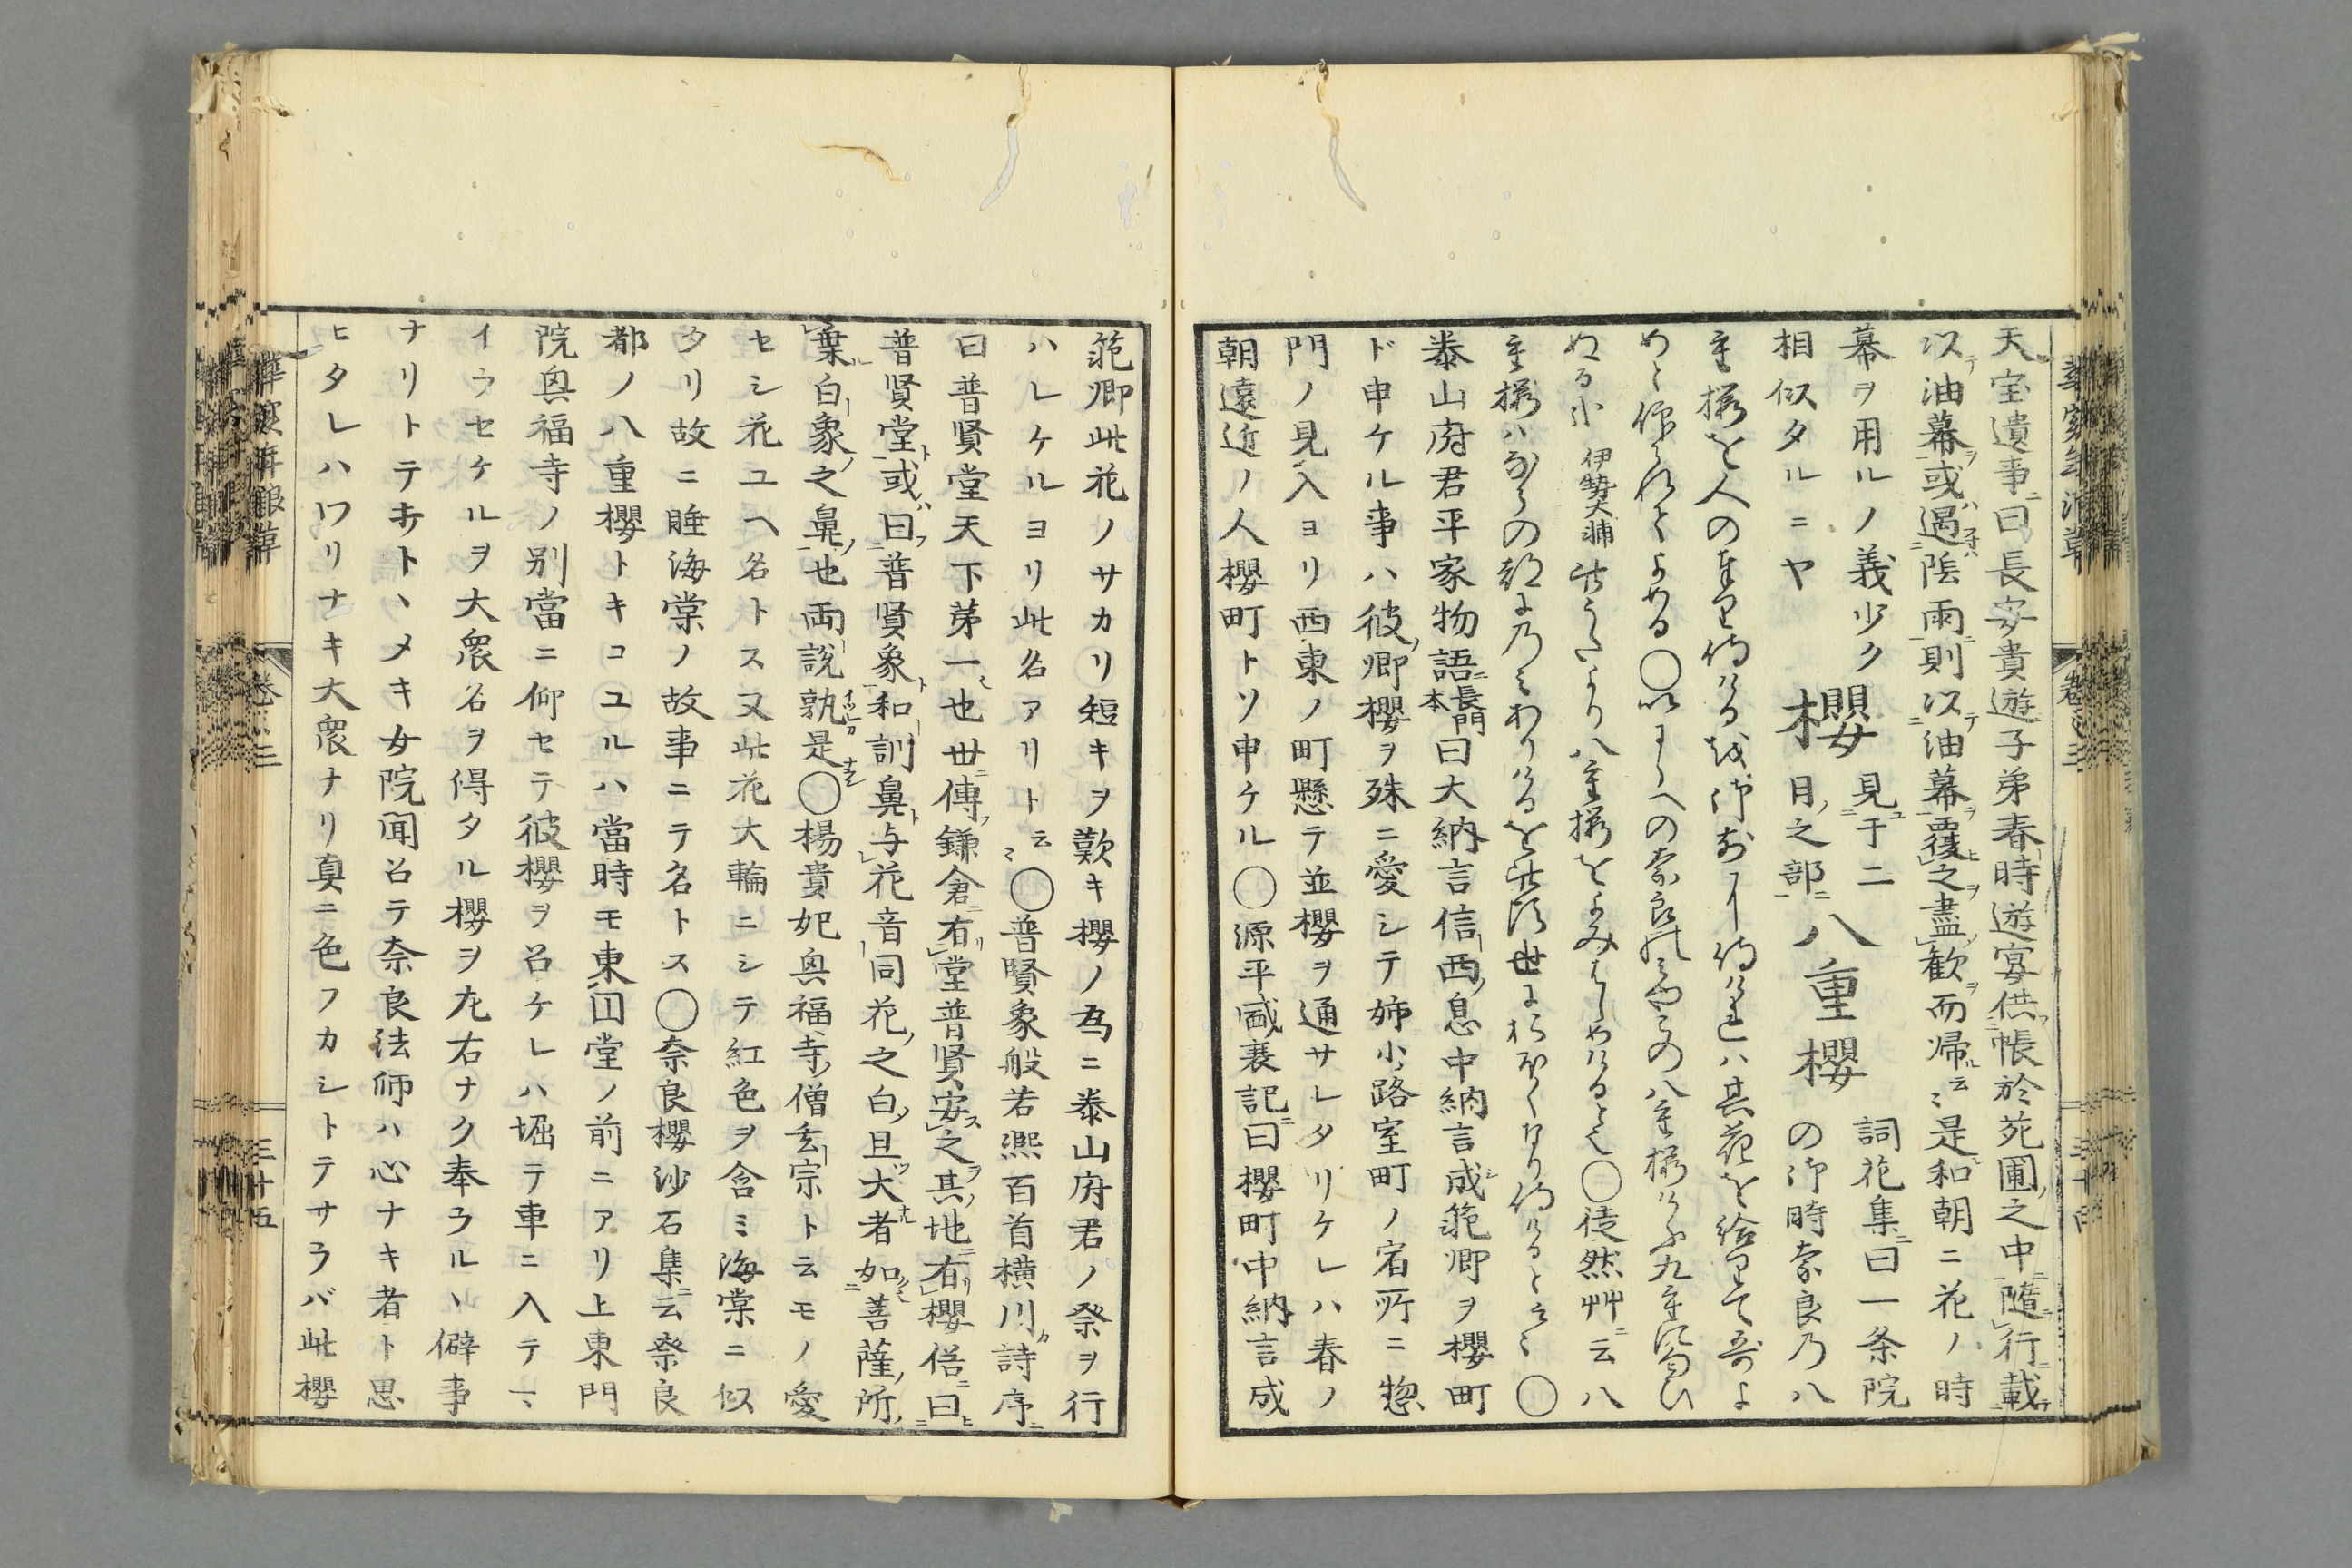 天宝遺事曰長安貴遊子弟春時遊宴供帳於苑圃之中隨行載
以油幕或遇陰雨則以油幕覆之盡歓而帰云〻是和朝ニ花ノ時
幕ヲ用ルノ義少ク
相似タルニヤ
櫻
見于二
月之部
八重櫻
詞花集曰一条院
の御時奈良乃八
重櫻を人の奉里侍りけるを御前に侍りけれハ其花を給里て哥よ
めと仰られてよめる〇いにしへの奈良のみやこの八重櫻けふ九重に匂ひ
ぬる哉
伊勢大輔
徒然艸ニ云八
重櫻ハならの都にのみありけるを此頃世におほくなり侍りけると云〻〇
泰山府君平家物語
長門
本
曰大納言信西息中納言成範卿ヲ櫻町
ド申ケル事ハ彼卿櫻ヲ殊ニ愛シテ姉小路室町ノ宿所ニ惣
門ノ見入ヨリ西東ノ町懸テ並櫻ヲ通サレタリケレハ春ノ
朝遠近ノ人櫻町トソ申ケル〇源平盛衰記曰櫻町中納言成
範卿此花ノサカリ短キヲ歎キ櫻ノ為ニ泰山府君ノ祭ヲ行
ハレケルヨリ此名アリト云〻〇普賢象般若煕百首横川詩序
曰普賢堂天下第一也世傳鎌倉有堂普賢安之其地有櫻俗曰
普賢堂或曰普賢象和訓鼻与花音同花之白且大者如菩薩所
乗白象之鼻也両説孰是〇楊貴妃興福寺僧玄宗ト云モノ愛
セシ花ユヘ名トス又此花大輪ニシテ紅色ヲ含ミ海棠ニ似
タリ故ニ睡海棠ノ故事ニテ名トス〇奈良櫻沙石集云奈良
都ノ八重櫻トキコユルハ當時モ東円堂ノ前ニアリ上東門
院興福寺ノ別當ニ仰セテ彼櫻ヲ召ケレハ堀テ車ニ入テ
イラセケルヲ大衆名ヲ得タル櫻ヲ左右ナク奉ラルヽ僻事
ナリトテキトヽメキ女院聞召テ奈良法師ハ心ナキ者ト思
ヒタレハワリナキ大衆ナリ真ニ色フカシトテサラバ此櫻
巻之三
三十五